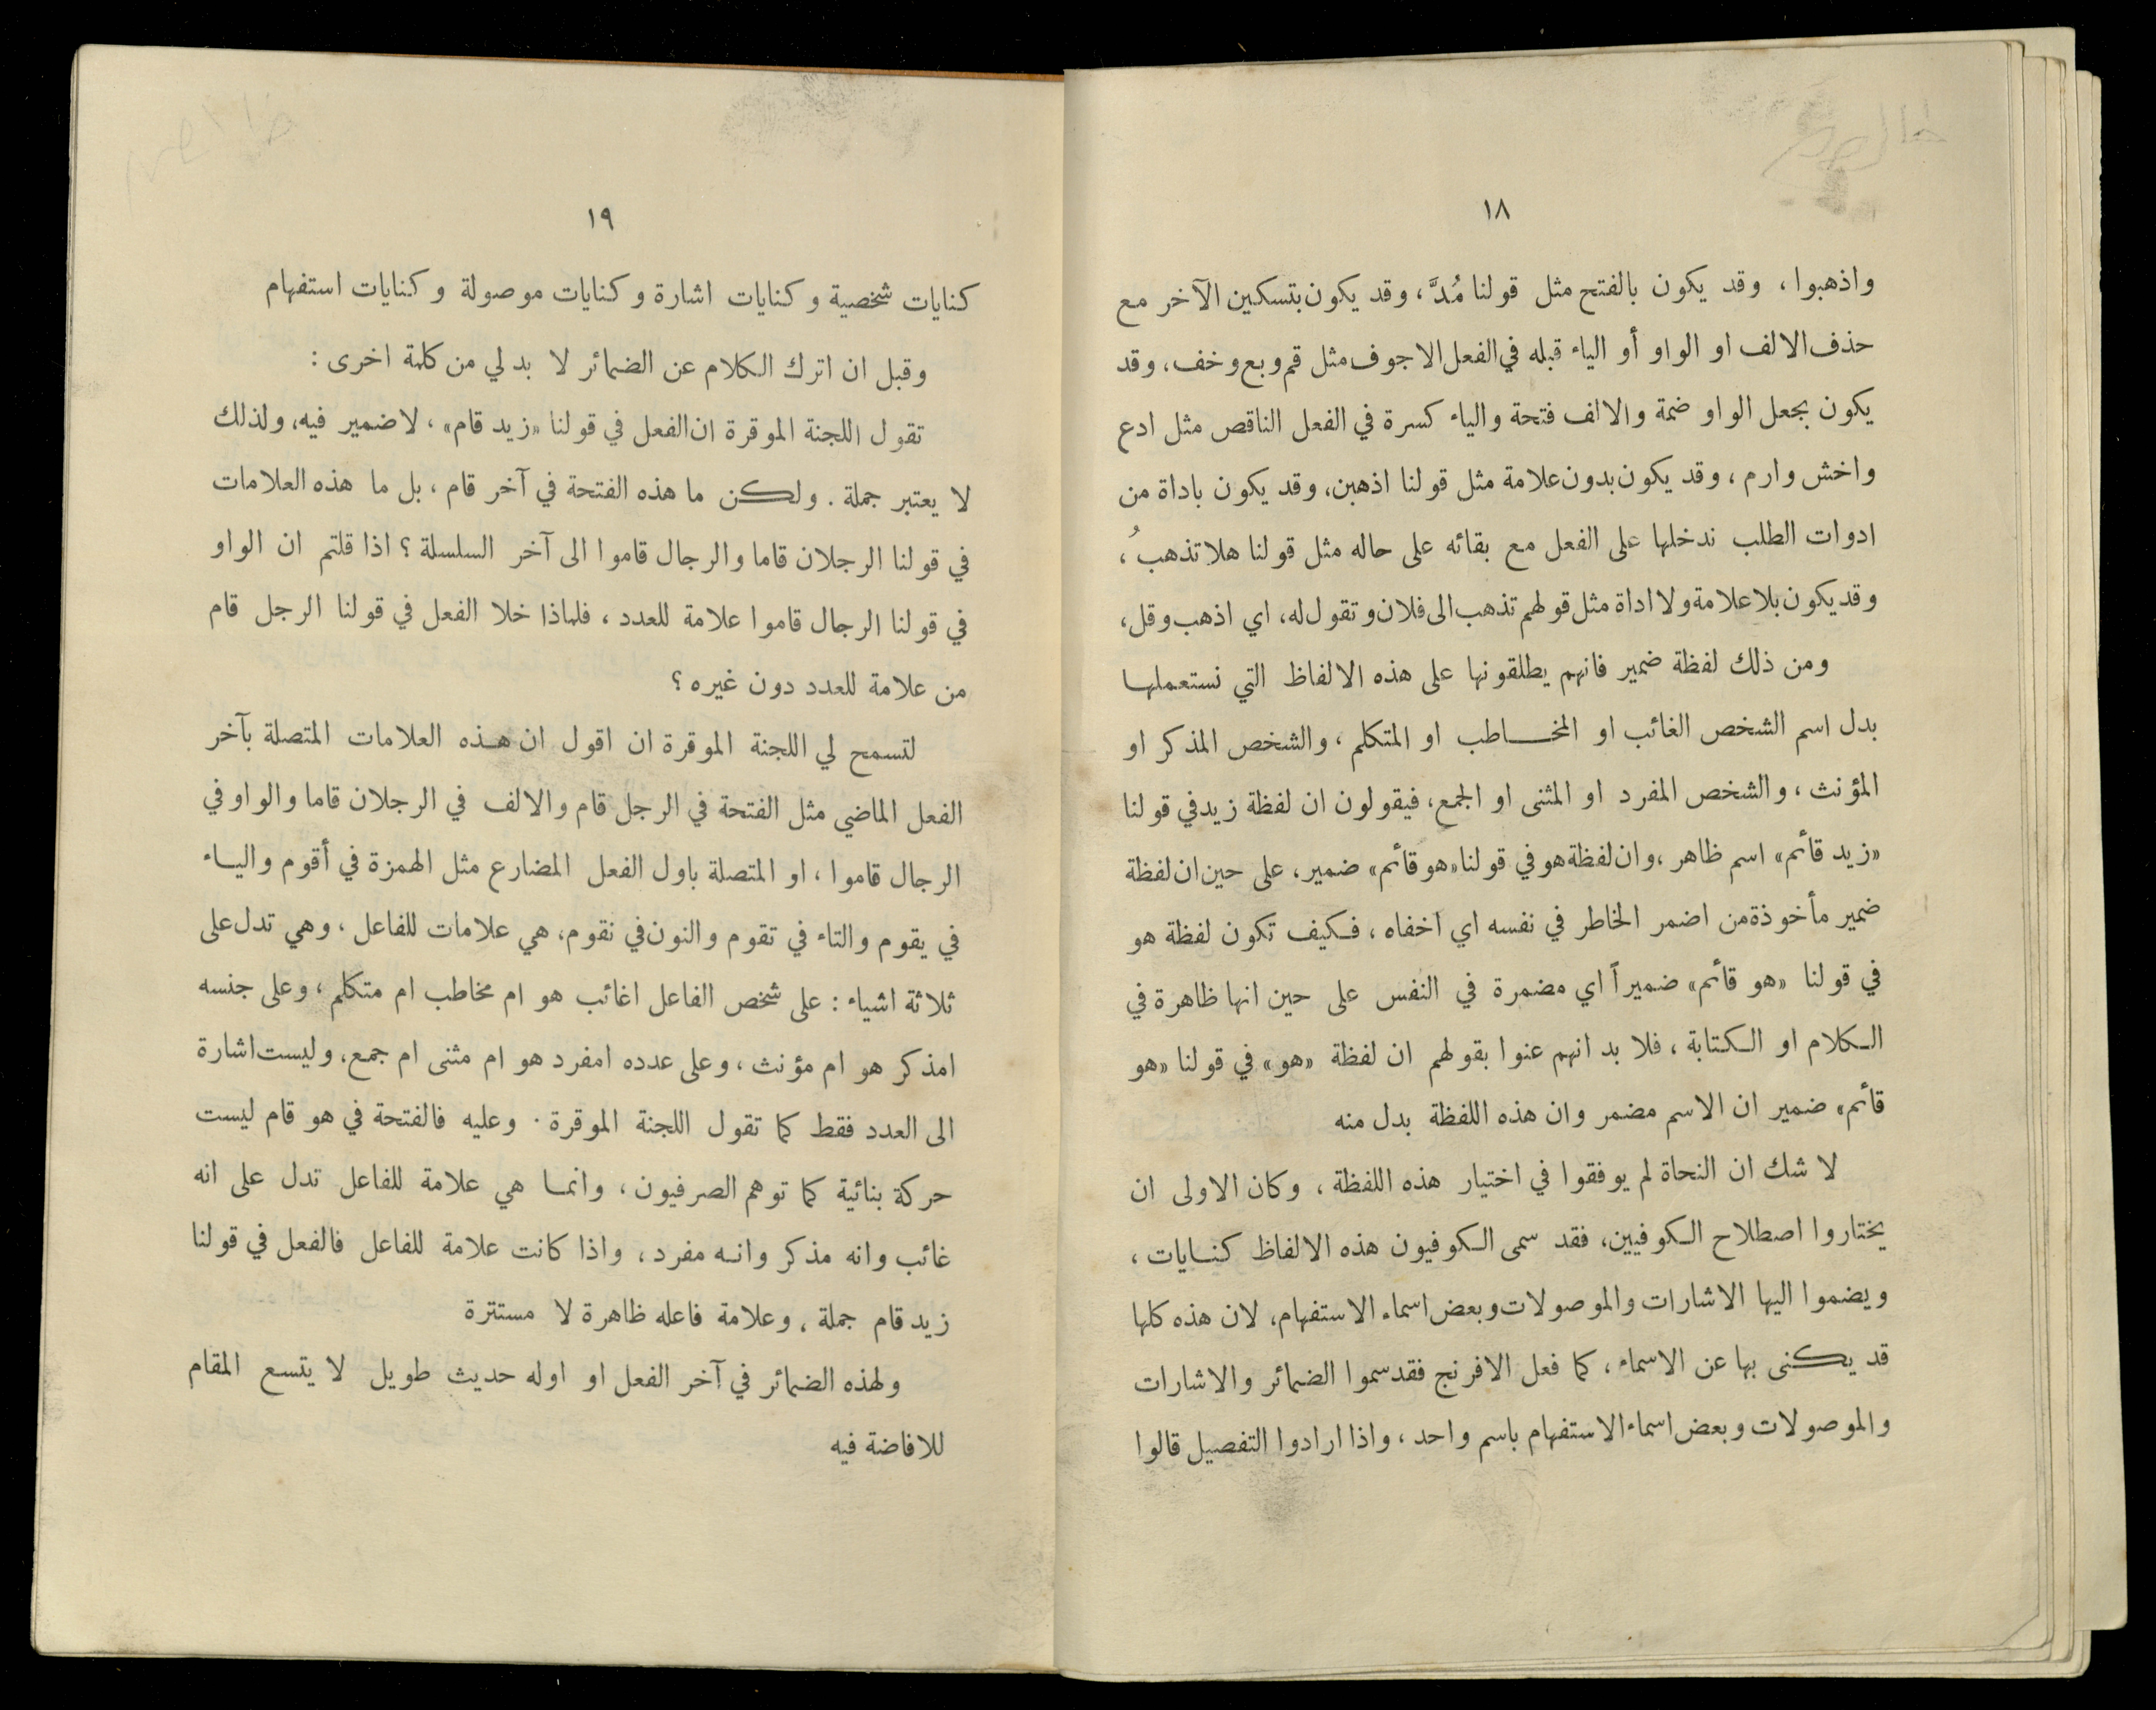 ١٨
واذهبوا، وقد يكون بالفتح مثل قولنا مُدَّ، وقد يكون بتسكين الآخر مع
حذف الالف او الواو أو الياء قبله في الفعل الاجوف مثل قم وبع وخف، وقد
يكون بجعل الواو ضمة والالف فتحة والياء كسرة في الفعل الناقص مثل ادع
واخش وارم، وقد يكون بدون علامة مثل قولنا اذهبن، وقد يكون باداة من
ادوات الطلب ندخلها على الفعل مع بقائه على حاله مثل قولنا هلا تذهبُ،
وقد يكون بلا علامة ولا اداة مثل قولهم تذهب الى فلان وتقول له، اي اذهب وقل،
ومن ذلك لفظة ضمير فانهم يطلقونها على هذه الالفاظ التي نستعملها
بدل اسم الشخص الغائب او المخاطب او المتكلم، والشخص المذكر او
المؤنث، والشخص المفرد او المثنى او الجمع، فيقولون ان لفظة زيد في قولنا
«زيد قائم» اسم ظاهر، وان لفظة هو في قولنا «هو قائم» ضمير، على حين ان لفظة
ضمير مأخوذة من اضمر الخاطر في نفسه اي اخفاه، فكيف تكون لفظة هو
في قولنا «هو قائم» ضميراً اي مضمرة في النفس على حين انها ظاهرة في
الكلام او الكتابة، فلا بد انهم عنوا بقولهم ان لفظة «هو» في قولنا «هو
قائم» ضمير ان الاسم مضمر وان هذه اللفظة بدل منه
لا شك ان النحاة لم يوفقوا في اختيار هذه اللفظة، وكان الاولى ان
يختاروا اصطلاح الكوفيين، فقد سمى الكوفيون هذه الالفاظ كنايات،
ويضموا اليها الاشارات والموصولات وبعض اسماء الاستفهام، لان هذه كلها
قد يكنى بها عن الاسماء، كما فعل الافرنج فقد سموا الضمائر والاشارات
والموصولات وبعض اسماء الاستفهام باسم واحد، واذا ارادوا التفصيل قالوا
١٩
كنايات شخصية وكنايات اشارة وكنايات موصولة وكنايات استفهام
وقبل ان اترك الكلام عن الضمائر لا بد لي من كلمة اخرى:
تقول اللجنة الموقرة ان الفعل في قولنا «زيد قام»، لا ضمير فيه، ولذلك
لا يعتبر جملة. ولكن ما هذه الفتحة في آخر قام، بل ما هذه العلامات
في قولنا الرجلان قاما والرجال قاموا الى آخر السلسلة؟ اذا قلتم ان الواو
في قولنا الرجال قاموا علامة للعدد، فلماذا خلا الفعل في قولنا الرجل قام
من علامة للعدد دون غيره؟
لتسمح لي اللجنة الموقرة ان اقول ان هذه العلامات المتصلة بآخر
الفعل الماضي مثل الفتحة في الرجل قام والالف في الرجلان قاما والواو في
الرجال قاموا، او المتصلة باول الفعل المضارع مثل الهمزة في أقوم والياء
في يقوم والتاء في تقوم والنون في نقوم، هي علامات للفاعل، وهي تدل على
ثلاثة اشياء: على شخص الفاعل اغائب هو ام مخاطب ام متكلم، وعلى جنسه
امذكر هو ام مؤنث، وعلى عدده امفرد هو ام مثنى ام جمع، وليست اشارة
الى العدد فقط كما تقول اللجنة الموقرة. وعليه فالفتحة في هو قام ليست
حركة بنائية كما توهم الصرفيون، وانما هي علامة للفاعل تدل على انه
غائب وانه مذكر وانه مفرد، واذا كانت علامة للفاعل فالفعل في قولنا
زيد قام جملة، وعلامة فاعله ظاهرة لا مستترة
ولهذه الضمائر في آخر الفعل او اوله حديث طويل لا يتسع المقام
للافاضة فيه